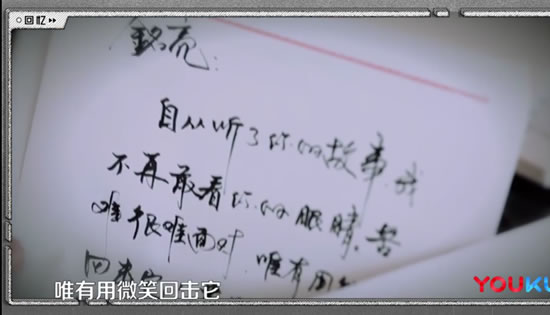 回忆
銘亮:
自从听了你的故事,我
不再敢看你的眼睛,苦
难很难面对,唯有用
回击它
唯有用微笑回击它
YOUKU